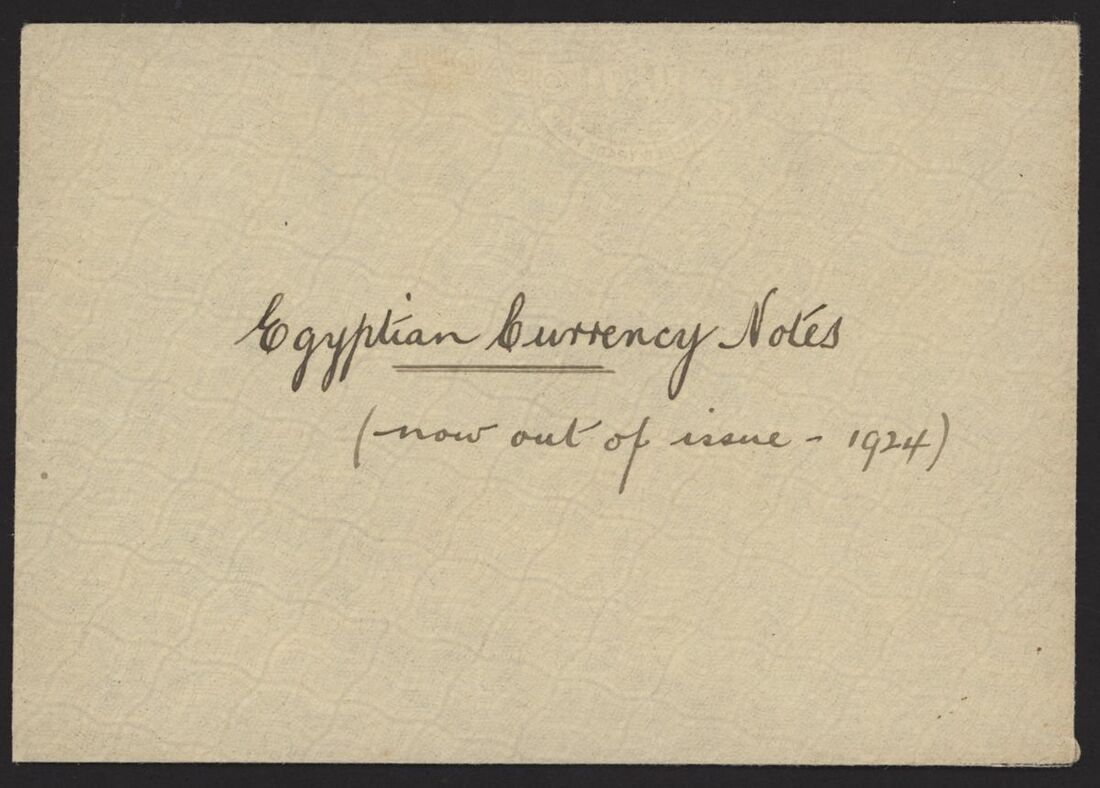 Egyptian Currency Notes
(now out of issue - 1924)